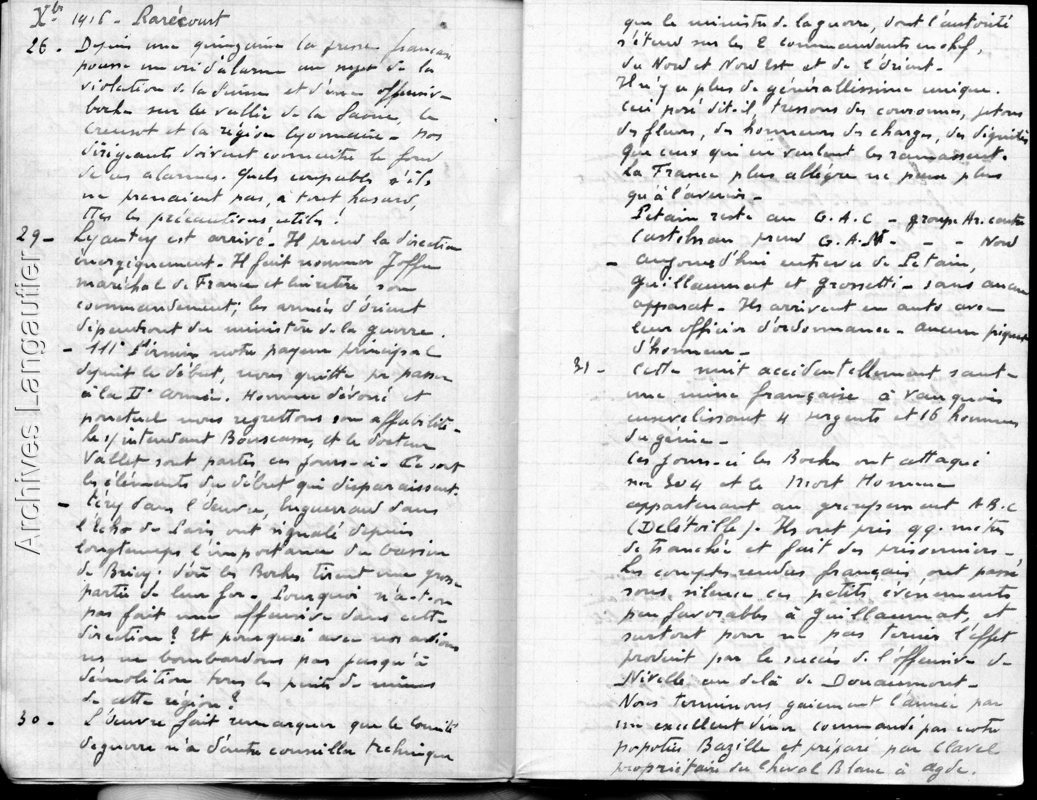 Xbre 1916 - Rarécourt
26 - Depuis une quinzaine la presse française
pousse un cri d'alarme au sujet de la
violation de la Suisse et d'une offensive
boche sur la vallée de la Saone, le
Creusot et la région lyonnaise - Nos
dirigeants doivent connaitre le fond
de ces alarmes. Quels coupables s'ils
ne prenaient pas, à tout hasard,
ttes les précautions utiles !
29 - Lyautey est arrivé - Il prend la direction
énergiquement - Il fait nommer Joffre
maréchal de France et lui retire son
commandement ; les armées d'Orient
dépendront du ministère de la guerre.
- Mr Firmin notre payeur principal
depuis le début, nous quitte pr passer
à la IIe armée. Homme dévoué et
ponctuel nous regrettons son affabilité -
le s/intendant et le docteur
Vallet sont partis ces jours-ci - Ce sont
les éléments du début qui disparaissent.
- Téry dans l'Oeuvre, dans
l'Echo de Paris, ont signalé depuis
longtemps l'importance du bassin
de Briey : d'où les Boches tirent une grosse
partie de leur fer - Pourquoi n'a-t-on
pas fait une offensive dans cette
direction ? Et pourquoi avec nos avions
ne bombardons pas jusqu'à
démolition tous les puits de mines
de cette région ?
30 - L'Oeuvre fait remarquer que le Comité
de guerre n'a d'autre conseiller technique
que le ministre de la guerre, dont l'autorité
s'étend sur les 2 commandants en chef,
du Nord et Nord Est et de l'Orient -
Il n'y a plus de générallissime unique.
Ceci posé dit-il, tressons des couronnes, jetons
des fleurs, des honneurs des charges, des dignités
Que ceux qui en veulent les ramassent.
La France plus allègre ne pense plus
qu'à l'avenir -
Petain reste au G.A.C - groupe Ar. centre
Castelnau prend G.A.N - - - Nord
- aujourd'hui entrevue de Petain,
Guillaumat et Grossetti - sans aucun
apparat - Ils arrivent en auto avec
leur officier d'ordonnance - aucun piquet
d'honneur -
31 - Cette nuit accidentellement saute
une mine française à Vauquois
ensevelissant 4 sergents et 16 hommes
du génie -
Ces jours-ci les Boches ont attaqué
sur 304 et le Mort Homme
appartenant au groupement ABC
(Delétoille). Ils ont pris qq. mètres
de tranchée et fait des prisonniers -
Les comptes rendus français, ont passé
sous silence ces petits évènements
peu favorables à Guillaumat, et
surtout pour ne pas ternir l'effet
produit par le succès de l'offensive de
Nivelle au delà de Douaumont -
Nous terminons gaiement l'année par
un excellent diner commandé par notre
popotier Bazille et préparé par Clavel
propriétaire du Cheval Blanc à Agde.
Archives Langautier